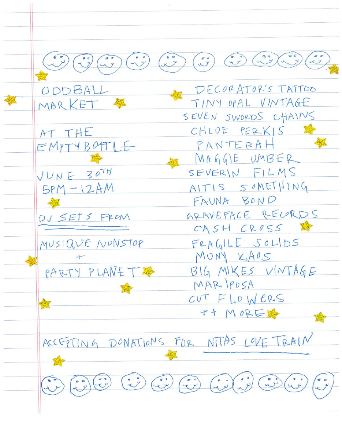 ODDBALL
MARKET
AT THE
EMPTY BOTTLE
JUNE 30TH
5PM-12AM
DJ SETS FROM
MUSIQUE NONSTOP
+
PARTY PLANET
DECORATOR'S TATTOO
TINY OPAL VINTAGE
SEVEN SWORDS CHAINS
CHLOE PERKIS
PANTERAH
MAGGIE UMBER
SEVERIN FILMS
AITIS SOMETHING
FAUNA BOND
GRAVEFACE RECORDS
CASH CROSS
FRAGILE SOLIDS
MONY KAOS
BIG MIKES VINTAGE
MARIPOSA
CUT FLOWERS
++ MORE
ACCEPTING DONATIONS FOR NITAS LOVE TRAIN